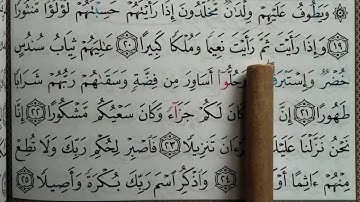 ۞ وَيَطُوفُ عَلَيْهِمْ وِلْدَٰنٌ مُّخَلَّدُونَ إِذَا رَأَيْتَهُمْ حَسِبْتَهُمْ لُؤْلُؤًا مَّنثُورًا
١٩ وَإِذَا رَأَيْتَ ثَمَّ رَأَيْتَ نَعِيمًا وَمُلْكًا كَبِيرًا ٢٠ عَٰلِيَهُمْ ثِيَابُ سُندُسٍ
خُضْرٌ وَإِسْتَبْرَقٌ وَحُلُّوٓا۟ أَسَاوِرَ مِن فِضَّةٍ وَسَقَىٰهُمْ رَبُّهُمْ شَرَابًا
طَهُورًا ٢١ إِنَّ كَانَ لَكُمْ جَزَآءً وَكَانَ سَعْيُكُم مَّشْكُورًا ٢٢
نَحْنُ نَزَّلْنَا عَلَيْكَ تَنزِيلًا ٢٣ فَٱصْبِرْ لِحُكْمِ رَبِّكَ وَلَا تُطِعْ
مِنْهُمْ ءَاثِمًا أَوْ ٢٤ وَٱذْكُرِ ٱسْمَ رَبِّكَ بُكْرَةً وَأَصِيلًا ٢٥